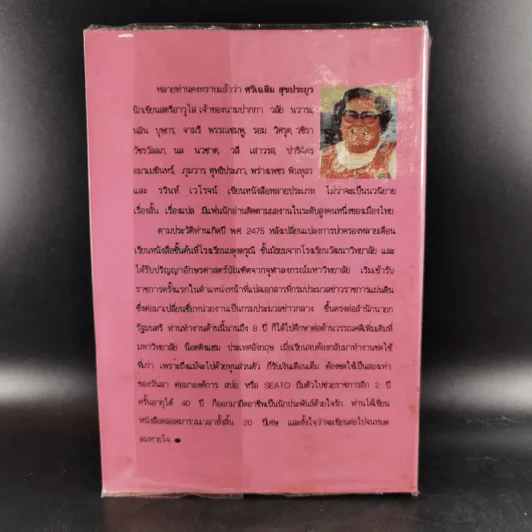 หลายท่านคงทราบแล้วว่า ศรีเฉลิม สุขประยูร
นักเขียนสตรีอาวุโส เจ้าของนามปากกา วลัย นวาระ,
นลิน บุษกร, จามรี พรรณชมพู, รอม วิศรุต, วชิรา
วัชรวัลลภ, นล นวชาต, วลี เสาวรส, ปาริฉัตร
อมาเมธินทร์, ภุมวาร ศุทธิประภา, พร่างเพชร พิณทุสร
และ รวินท์ เวโรจน์ เขียนหนังสือหลายประเภท ไม่ว่าจะเป็นนวนิยาย
เรื่องสั้น เรื่องแปล มีแฟนนักอ่านติดตามผลงานในระดับสูงคนหนึ่งของเมืองไทย
ตามประวัติท่านเกิดปี พ.ศ. 2475 หลังเปลี่ยนแปลงการปกครองหลายเดือน
เรียนหนังสือชั้นต้นที่โรงเรียนผดุงดรุณี ชั้นมัธยมจากโรงเรียนวัฒนาวิทยาลัย และ
ได้รับปริญญาอักษรศาสตร์บัณฑิตจากจุฬาลงกรณ์มหาวิทยาลัย เริ่มเข้ารับ
ราชการครั้งแรกในตำแหน่งหน้าที่แปลเอกสารที่กรมประมวลข่าวราชการแผ่นดิน
ซึ่งต่อมาเปลี่ยนชื่อหน่วยงานเป็นกรมประมวลข่าวกลาง ขึ้นตรงต่อสำนักนายก
รัฐมนตรี ท่านทำงานด้านนี้นานถึง 8 ปี ก็ได้ไปศึกษาต่อด้านวรรณคดีเพิ่มเติมที่
มหาวิทยาลัย น็อตติงแฮม ประเทศอังกฤษ เมื่อเรียนจบต้องกลับมาทำงานชดใช้
ที่เก่า เพราะถึงแม้จะไปด้วยทุนส่วนตัว ก็รับเงินเดือนเต็ม ต้องชดใช้เป็นสองเท่า
ของวันลา ต่อมาองค์การ สปอ. หรือ SEATO ยืมตัวไปช่วยราชการอีก 2 ปี
ครั้นอายุได้ 40 ปี ก็ออกมายึดอาชีพเป็นนักประพันธ์ด้วยใจรัก ท่านได้เขียน
หนังสือตลอดมารวมเวลาทั้งสิ้น 20 ปีเศษ และตั้งใจว่าจะเขียนต่อไปจนหมด
ลมหายใจ